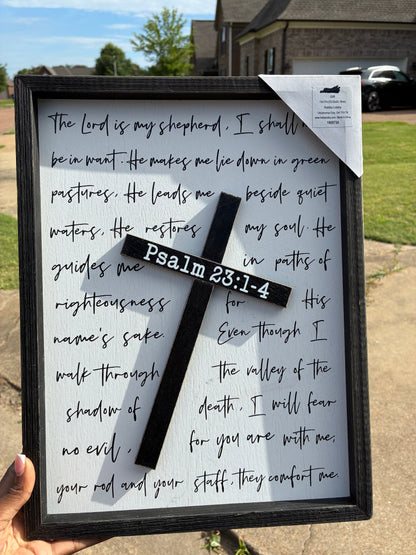 The Lord is my shepherd, I shall
be in want. He makes me lie down in green
pastures, He leads me beside quiet
waters, He restores my soul. He
guides me in paths of
Psalm 23:1-4
righteousness for His
name's sake. Even though I
walk through the valley of the
shadow of death, I will fear
no evil, for you are with me;
your rod and your staff, they comfort me.